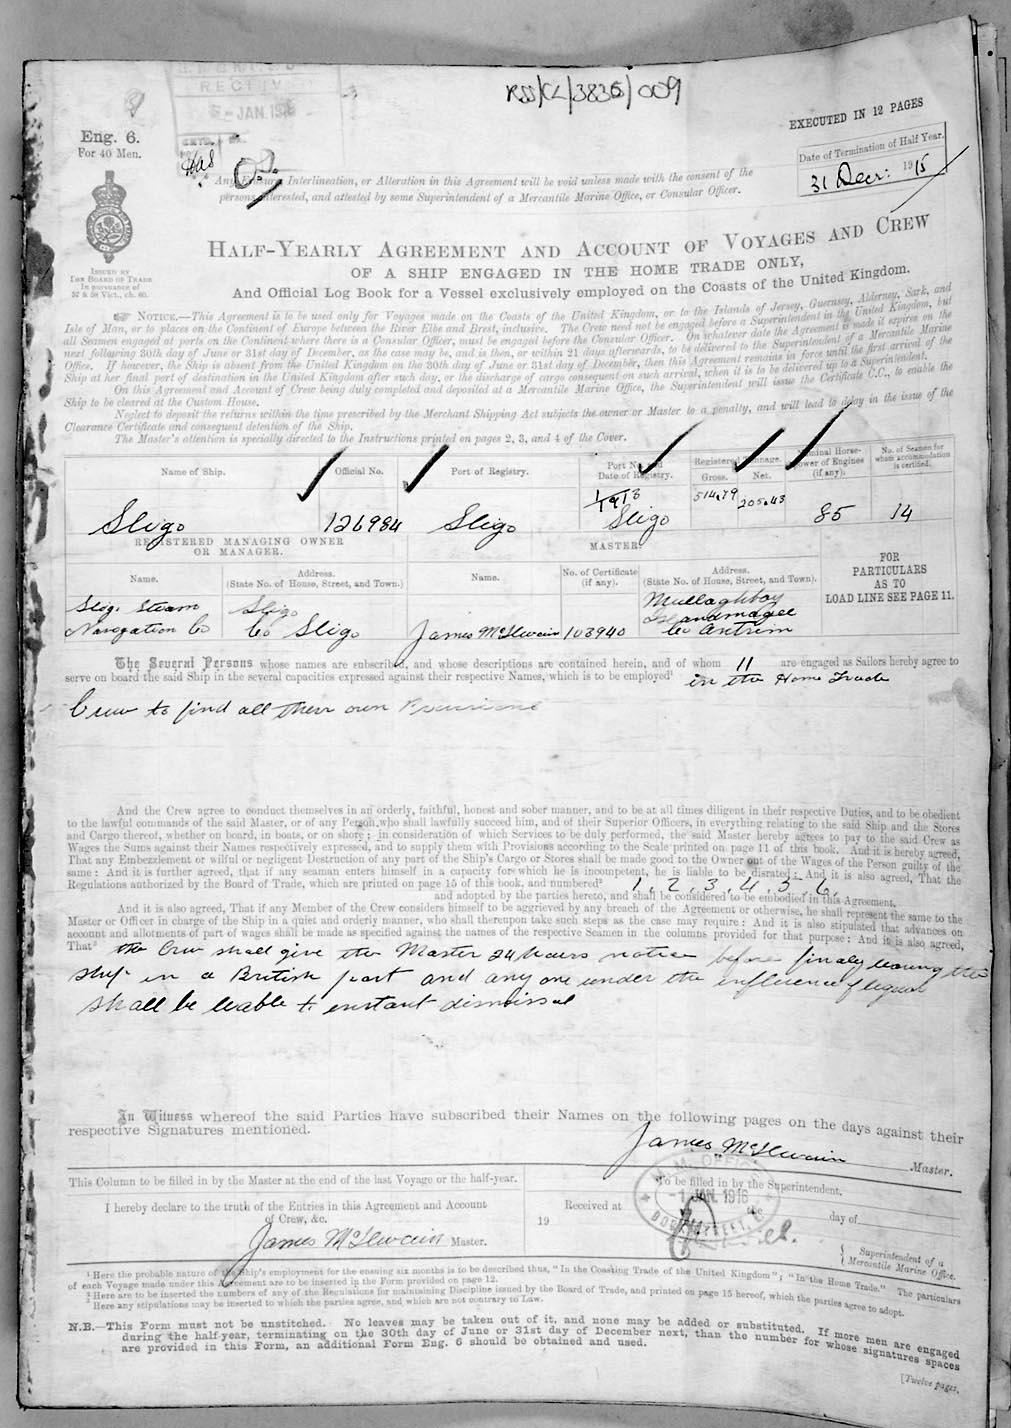 RSS/CL/3835/009
RECEIVED
5-JAN 1916
EXECUTED IN 12 PAGES
Eng. 6.
For 40 Men.
Date of Termination of Half Year.
31 Decr: 1915
Any Erasure, Interlineation, or Alteration in this Agreement will be void unless made with the consent of the
persons interested, and attested by some Superintendent of a Mercantile Marine Office, or Consular Officer.
ISSUED BY
THE BOARD OF TRADE
In pursuance of
57 & 58 Vict., ch. 60.
HALF-YEARLY AGREEMENT AND ACCOUNT OF VOYAGES AND CREW
OF A SHIP ENGAGED IN THE HOME TRADE ONLY,
And Official Log Book for a Vessel exclusively employed on the Coasts of the United Kingdom.
NOTICE.—This Agreement is to be used only for Voyages made on the Coasts of the United Kingdom, or to the Islands of Jersey, Guernsey, Alderney, Sark, and
Isle of Man, or to places on the Continent of Europe between the River Elbe and Brest, inclusive. The Crew need not be engaged before a Superintendent in the United Kingdom, but
all Seamen engaged at ports on the Continent where there is a Consular Officer, must be engaged before the Consular Officer. On whatever date the Agreement is made it expires on the
next following 30th day of June or 31st day of December, as the case may be, and is then, or within 21 days afterwards, to be delivered to the Superintendent of a Mercantile Marine
Office. If however, the Ship is absent from the United Kingdom on the 30th day of June or 31st day of December, then this Agreement remains in force until the first arrival of the
Ship at her final port of destination in the United Kingdom after such day, or the discharge of cargo consequent on such arrival, when it is to be delivered up to a Superintendent.
On this Agreement and Account of Crew being duly completed and deposited at a Mercantile Marine Office, the Superintendent will issue the Certificate C.C., to enable the
Ship to be cleared at the Custom House.
Neglect to deposit the returns within the time prescribed by the Merchant Shipping Act subjects the owner or Master to a penalty, and will lead to delay in the issue of the
Clearance Certificate and consequent detention of the Ship.
The Master's attention is specially directed to the Instructions printed on pages 2, 3, and 4 of the Cover.
Name of Ship. Official No. Port of Registry. Port No. and Date of Registry. Registered Tonnage. Gross. Net. Nominal Horse-power of Engines (if any). No. of Seamen for whom accommodation is certified.
Sligo 126984 Sligo 1/1913 Sligo 514.79 205.43 85 14
REGISTERED MANAGING OWNER
OR MANAGER.
MASTER.
FOR
PARTICULARS
AS TO
LOAD LINE SEE PAGE 11.
Name. Address. (State No. of House, Street, and Town.) Name. No. of Certificate (if any). Address. (State No. of House, Street, and Town).
Sligo Steam
Navagation Co
Sligo
Co Sligo
James McIlwain
103940
Mullaghboy
Islandmagee
Co Antrim
The Several Persons whose names are subscribed, and whose descriptions are contained herein, and of whom 11 are engaged as Sailors hereby agree to
serve on board the said Ship in the several capacities expressed against their respective Names, which is to be employed¹ in the Home Trade
Crew to find all their own Provisions
And the Crew agree to conduct themselves in an orderly, faithful, honest and sober manner, and to be at all times diligent in their respective Duties, and to be obedient
to the lawful commands of the said Master, or of any Person who shall lawfully succeed him, and of their Superior Officers, in everything relating to the said Ship and the Stores
and Cargo thereof, whether on board, in boats, or on shore; in consideration of which Services to be duly performed, the said Master hereby agrees to pay to the said Crew as
Wages the Sums against their Names respectively expressed, and to supply them with Provisions according to the Scale printed on page 11 of this book. And it is hereby agreed,
That any Embezzlement or wilful or negligent Destruction of any part of the Ship's Cargo or Stores shall be made good to the Owner out of the Wages of the Person guilty of the
same: And it is further agreed, that if any seaman enters himself in a capacity for which he is incompetent, he is liable to be disrated; And it is also agreed, That the
Regulations authorized by the Board of Trade, which are printed on page 15 of this book, and numbered² 1, 2, 3, 4, 5, 6,
and adopted by the parties hereto, and shall be considered to be embodied in this Agreement.
And it is also agreed, That if any Member of the Crew considers himself to be aggrieved by any breach of the Agreement or otherwise, he shall represent the same to the
Master or Officer in charge of the Ship in a quiet and orderly manner, who shall thereupon take such steps as the case may require: And it is also stipulated that advances on
account and allotments of part of wages shall be made as specified against the names of the respective Seamen in the columns provided for that purpose: And it is also agreed,
That³ the Crew shall give the Master 24 hours notice before finaly leaving the
ship in a British port and any one under the influence of liquor
shall be leable to instant dismissal
In Witness whereof the said Parties have subscribed their Names on the following pages on the days against their
respective Signatures mentioned.
James McIlwain Master.
This Column to be filled in by the Master at the end of the last Voyage or the half-year.
I hereby declare to the truth of the Entries in this Agreement and Account
of Crew, &c.
James McIlwain Master.
To be filled in by the Superintendent.
M. M. OFFICE
-1 JAN. 1916
Received at the day of 19
Superintendent of a
Mercantile Marine Office.
¹ Here the probable nature of the Ship's employment for the ensuing six months is to be described thus, "In the Coasting Trade of the United Kingdom"; "In the Home Trade." The particulars
of each Voyage made under this Agreement are to be inserted in the Form provided on page 12.
² Here are to be inserted the numbers of any of the Regulations for maintaining Discipline issued by the Board of Trade, and printed on page 15 hereof, which the parties agree to adopt.
³ Here any stipulations may be inserted to which the parties agree, and which are not contrary to Law.
N.B.—This Form must not be unstitched. No leaves may be taken out of it, and none may be added or substituted. If more men are engaged
during the half-year, terminating on the 30th day of June or 31st day of December next, than the number for whose signatures spaces
are provided in this Form, an additional Form Eng. 6 should be obtained and used.
[Twelve pages.